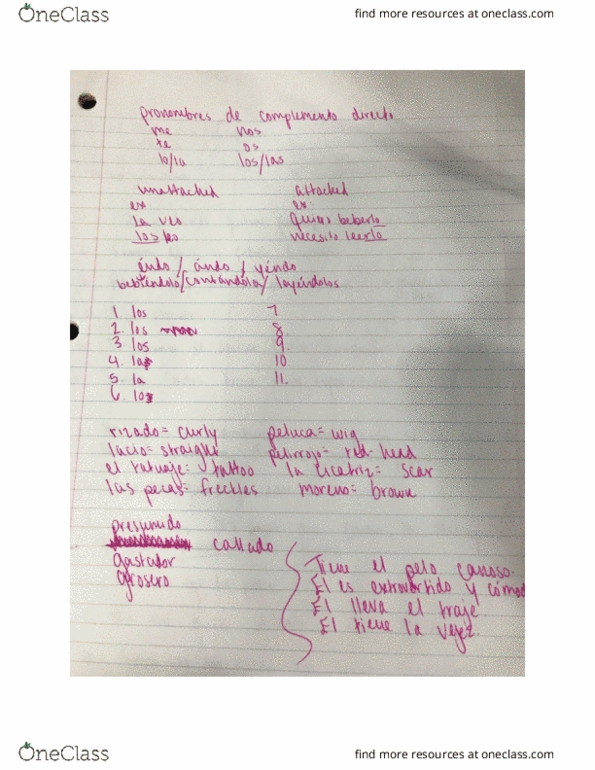 OneClass
find more resources at oneclass.com
pronombres de complemento directo
me nos
te os
lo/la los/las
unattached attached
ex ex
La veo quiero beberlo
los leo necesito leerlo
éndo / ándo / yéndo
bebiéndolo/contándola/ leyéndolos
1. los 7
2. los 8
3. los 9.
4. la 10
5. la 11.
6. lo
rizado = curly peluca = wig
lacio = straight pelirrojo = red-head
el tatuaje = tattoo la cicatriz = scar
las pecas = freckles moreno = brown
presumido
callado
gastador
grosero
Tiene el pelo canoso.
Él es extrovertido y cómod
Él lleva el traje
Él tiene la vejez.
OneClass
find more resources at oneclass.com